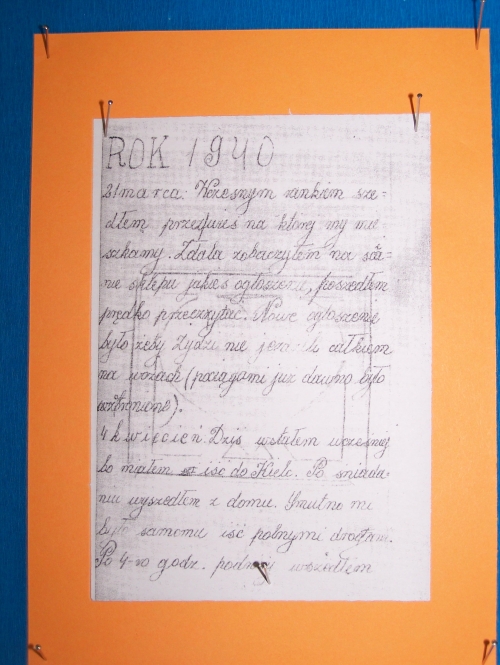 ROK 1940
21 marca. Wczesnym rankiem sze=
dłem przez wieś na której my mie
szkamy. Zdala zobaczyłem na ścia=
nie sklepu jakieś ogłoszenie, poszedłem
prędko przeczytać. Nowe ogłoszenie
było żeby Żydzi nie całkiem
na wozach (pociągami już dawno było
wzbronione).
4 kwiecień. Dziś wstałem wcześniej
bo miałem iść do Kielc. Po śniada-
niu wyszedłem z domu. Smutno mi
było samemu iść polnymi drogami.
Po 4-ro godz. podróży wszedłem